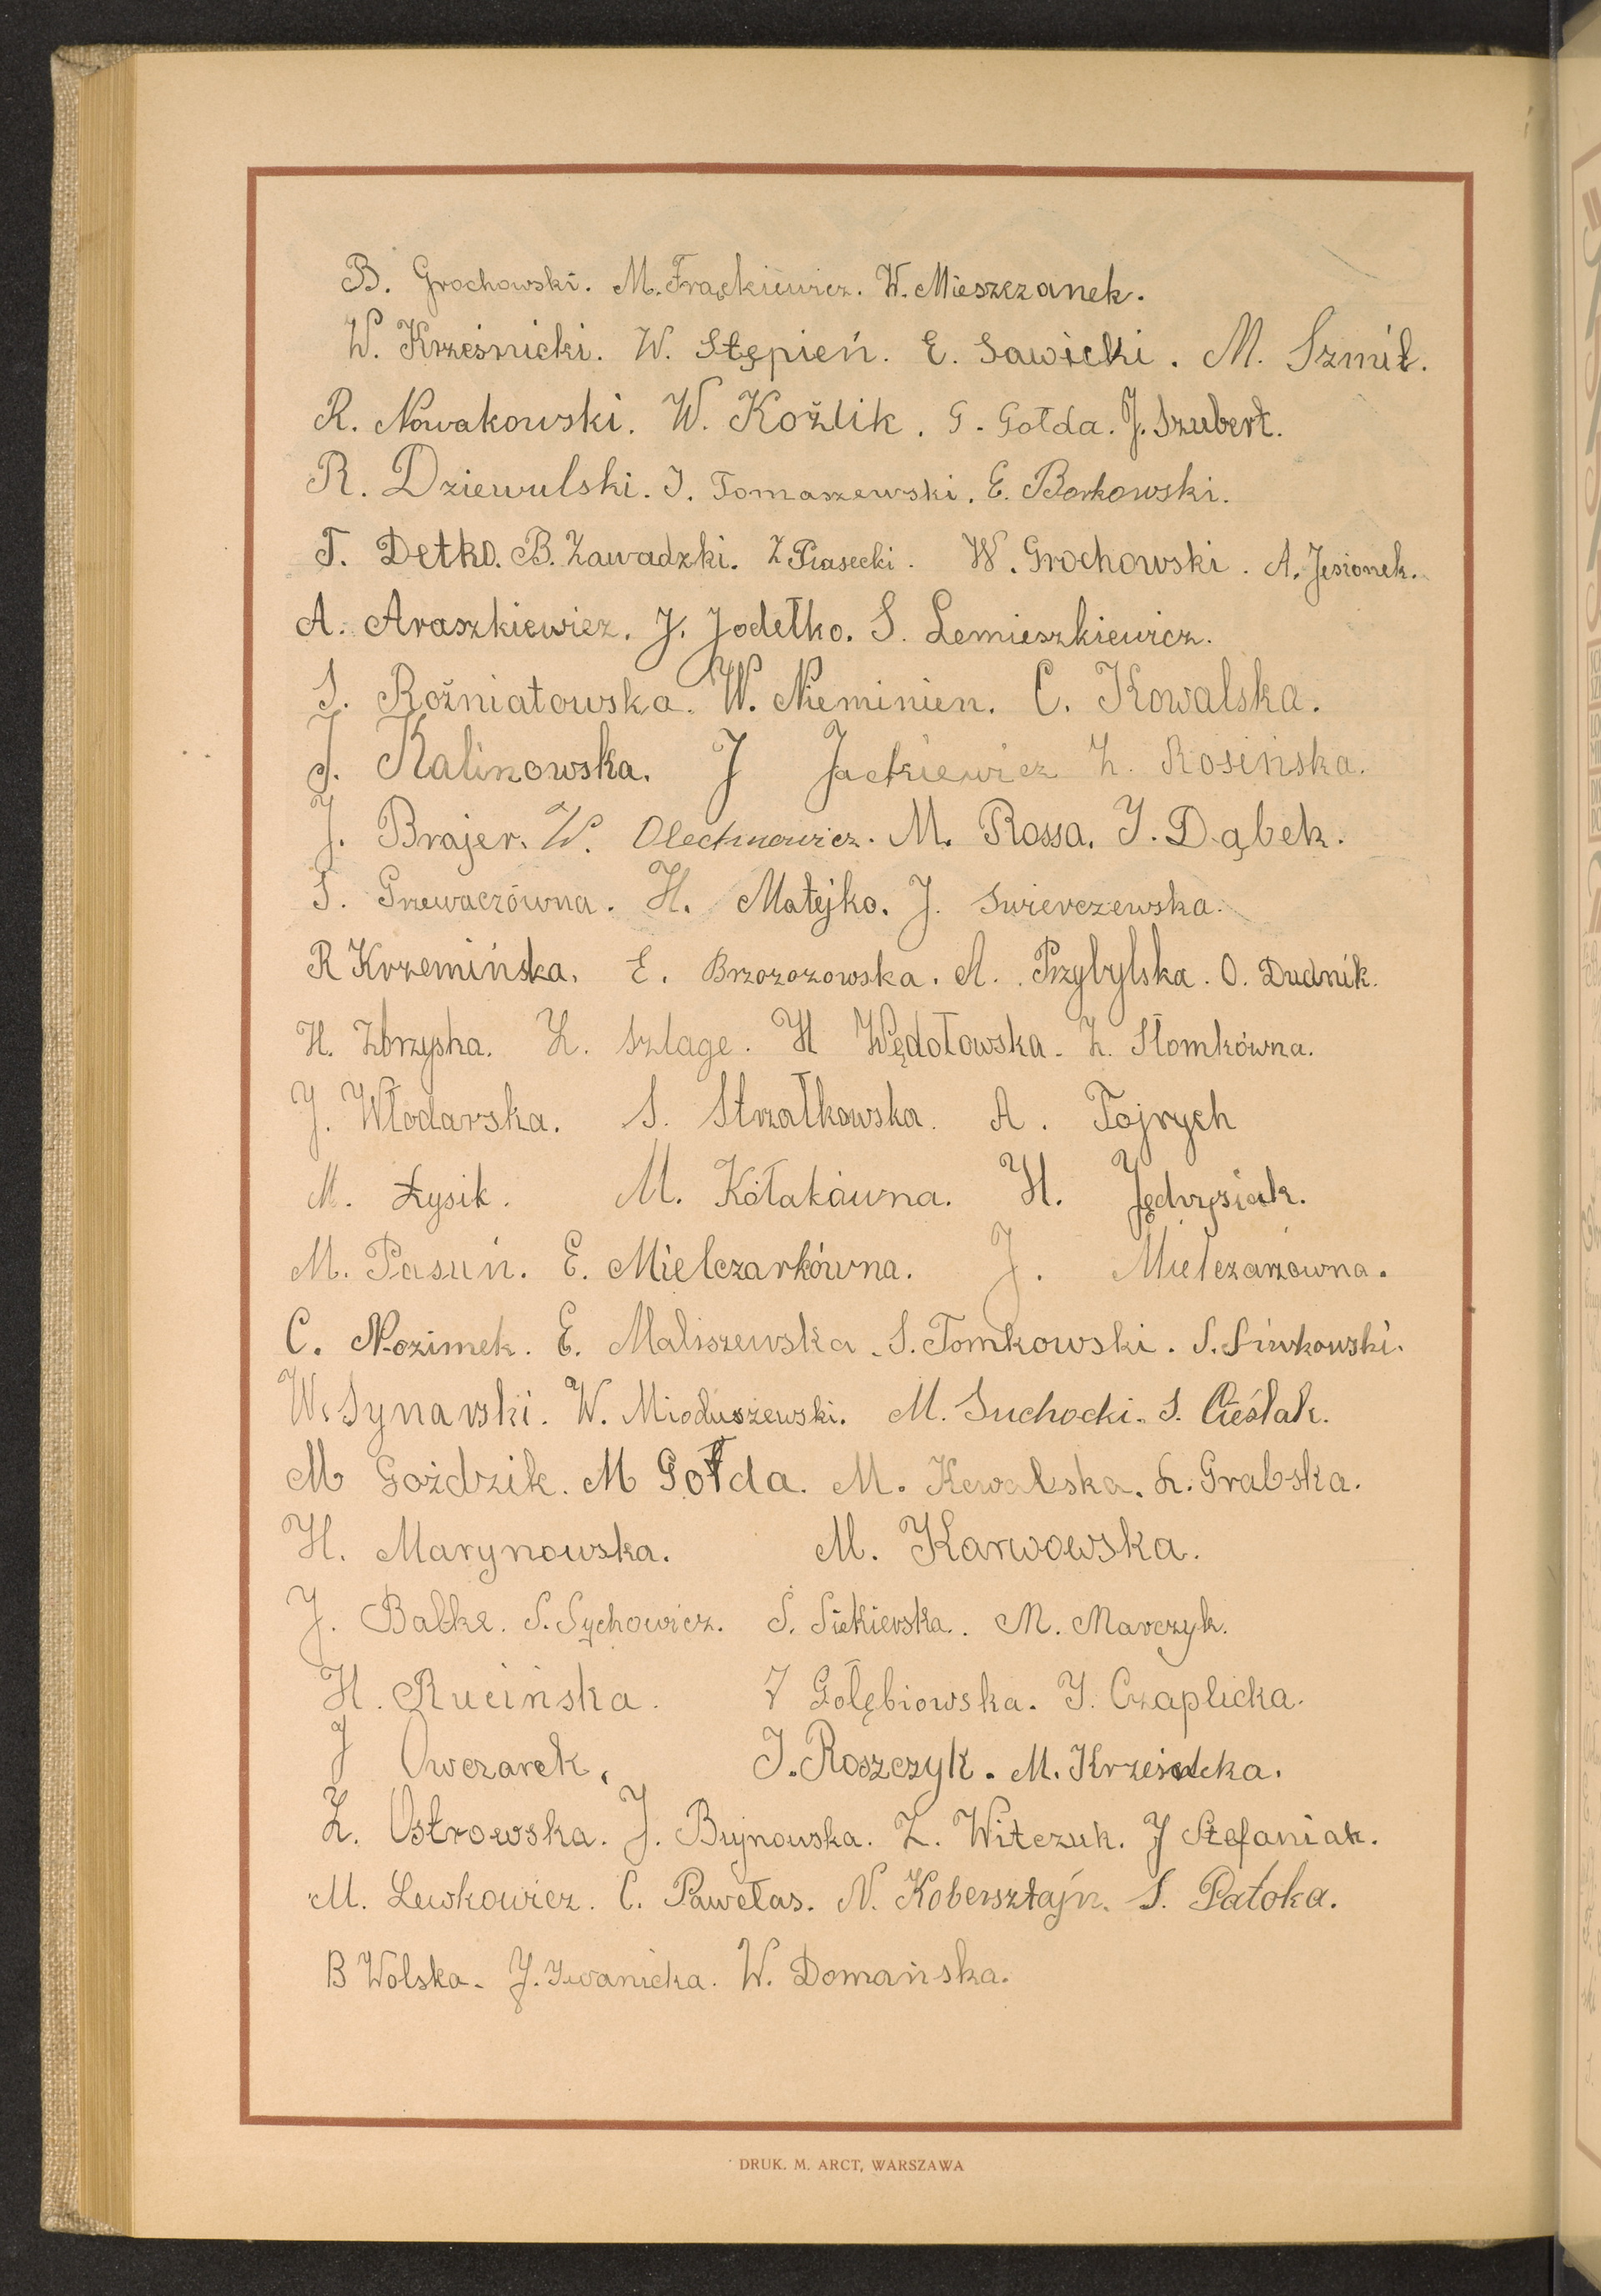 B. Grochowski. M. Frąckiewicz. W. Mieszczanek.
W. Krześnicki. W. Stępień. E. Sawicki. M. Szmit.
R. Nowakowski. W. Koźlik. G. Gołda. J. Szubert.
R. Dziewulski. J. Tomaszewski. E. Borkowski.
T. Detko. B. Zawadzki. Z Piasecki. W. Grochowski. A. Jesionek.
A. Araszkiewicz. J. Jodełko. S. Lemieszkiewicz.
S. Roźniatowska. W. Nieminien. C. Kowalska.
J. Kalinowska. J Jackiewicz Z. Rosińska.
J. Brajer. W. Olechnowicz. M. Rossa. J. Dąbek.
S. Gnewaczówna. H. Matejko. J. Swierczewska.
R Krzemińska. E. Brzozozowska. A. Przybylska. O. Dudnik.
H. Zbrzyska. Z. Szlage. H Wędołowska. Z. Słomkówna.
J. Włodarska. S. Strzałkowska. A. Fojrych
M. Łysik. M. Kołakówna. H. Jędrysiak.
M. Pasuń. E. Mielczarkówna. J. Mielczarzowna.
C. Nozimek. E. Maliszewska. S. Tomkowski. S. Siwkowski.
W. Synarski. W. Mioduszewski. M. Suchocki. S. Cieślak.
M Goździk. M Gołda. M. Kowalska. L. Grabska.
H. Marynowska. M. Karwowska.
J. Balke. S. Sychowicz. S. Siekierska. M. Marczyk.
H. Rucińska. J Gołębiowska. J. Czaplicka.
J Owczarek. J. Roszczyk. M. Krześnicka.
Z. Ostrowska. J. Bujnowska. Z. Witczuk. J Stefaniak.
M. Lewkowicz. C. Pawełas. N. Kobersztajn. S. Patoka.
B Wolska. J. Iwanicka. W. Domańska.
DRUK. M. ARCT, WARSZAWA